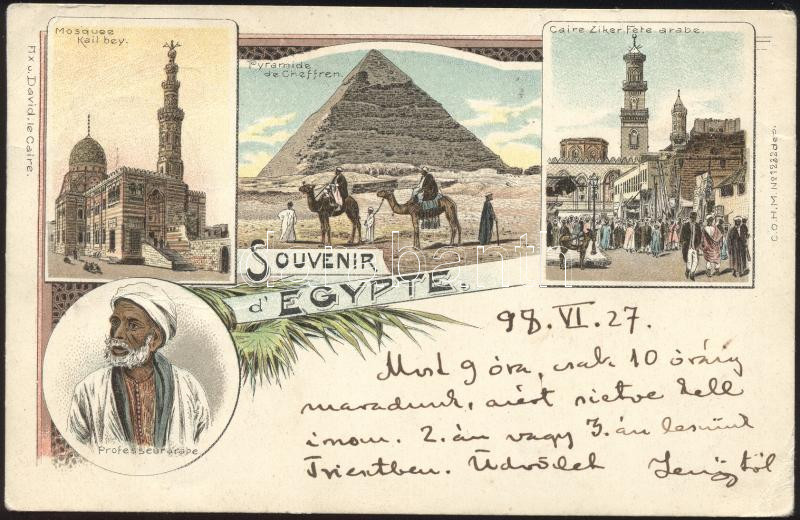 Mosquée
Kaïl bey.
Pyramide
de Cheffren.
Caire Ziker Fete arabe.
Fx v. David, le Caire.
C.O.H.M. No 1222 dep.
SOUVENIR
d'EGYPTE.
Professeur arabe
98. VI. 27.
Most 9 óra, csak 10 óráig
maradunk, azért sietve kell
írnom. 2.án vagy 3.án leszünk
Triestben. Üdvözlet Jenőtől